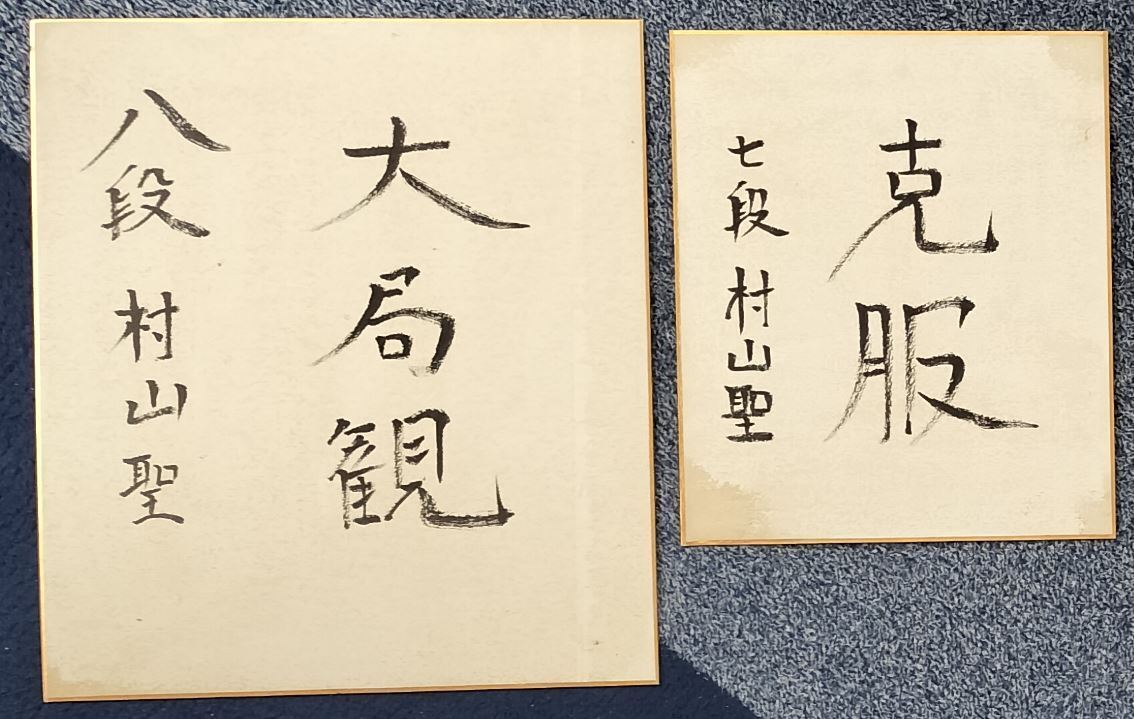 大局観
八段 村山聖
克服
七段 村山聖